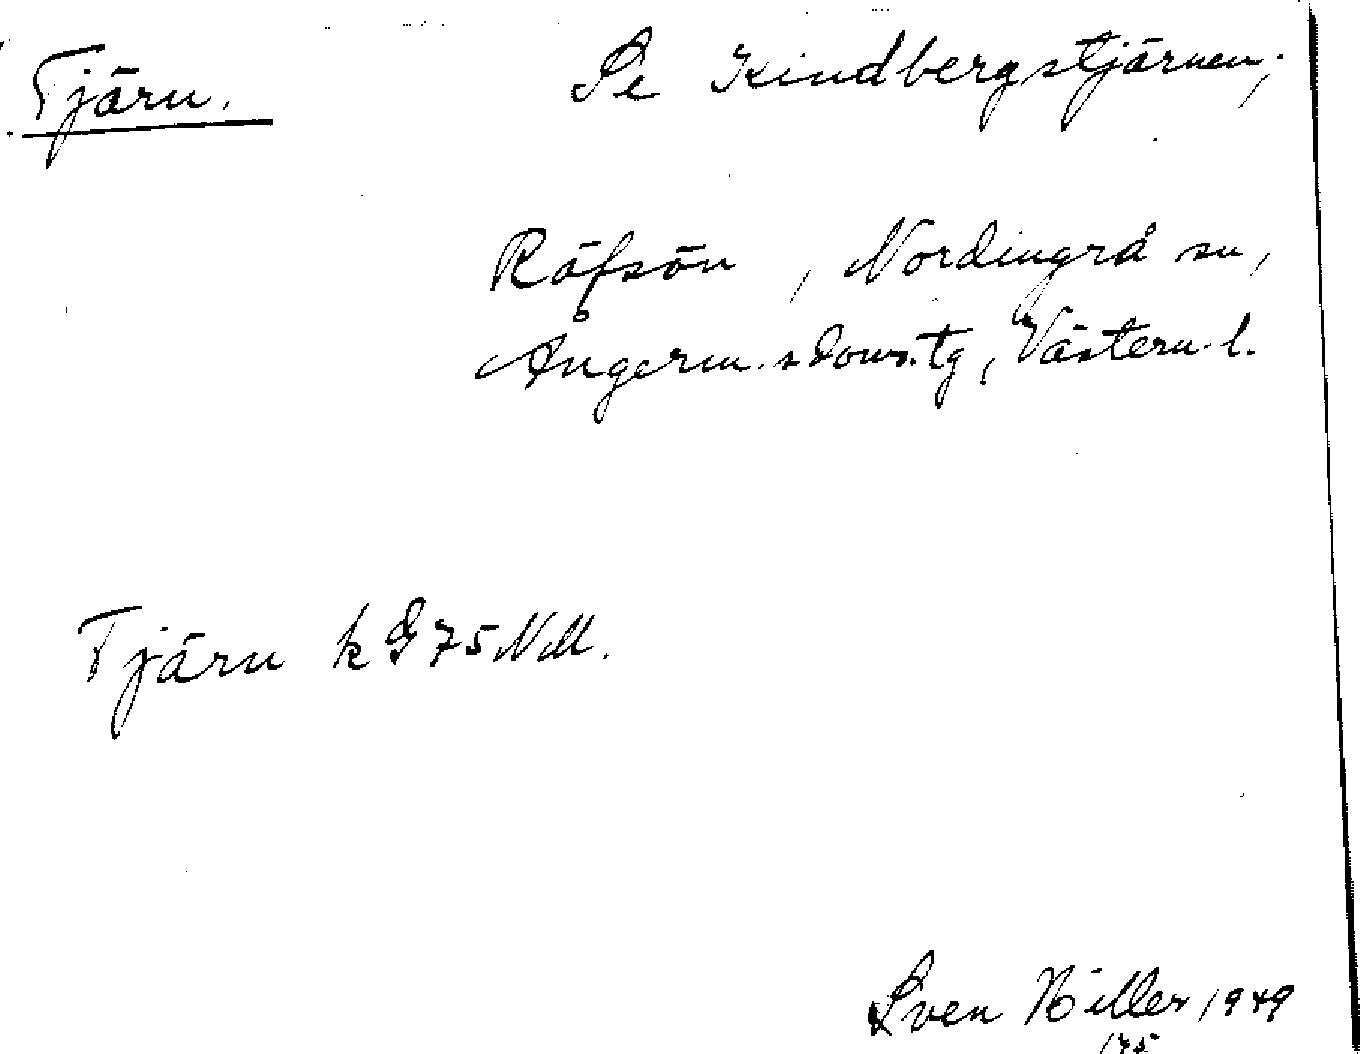 Tjärn. Se Kindbergstjärnen;
Räfsön, Nordingrå sn,
Ångerm.s doms.tg, Västern.l.
Tjärn k G 75 NM.
Sven Hiller 1949